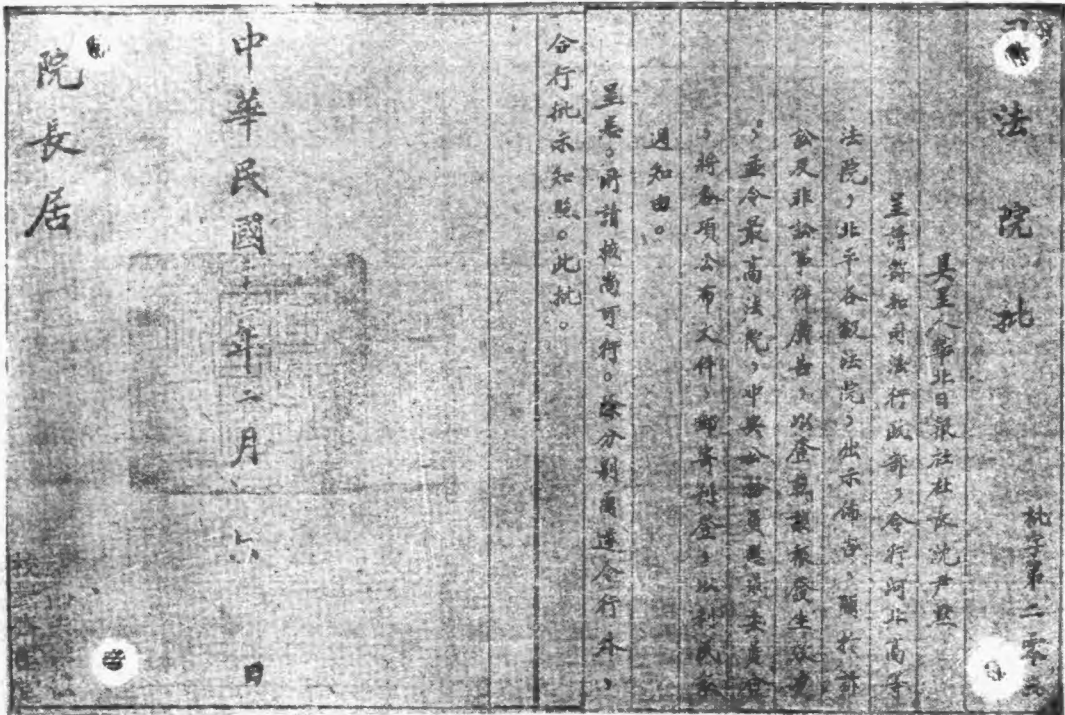 司法院批
批字第二零六
具呈人華北日報社社長沈尹默
呈請飭知司法行政部，令行河北高等
法院，北平各級法院，出示佈告，關於訴
訟及非訟事件廣告，以登載該報發生效力
，並令最高法院，中央公務員懲戒委員會
，將各項公布文件，郵寄刊登，以利民眾
週知由。
呈悉，所請核尚可行。除分別函達令行外，
合行批示知照。此批。
中華民國二年二月六日
院長居